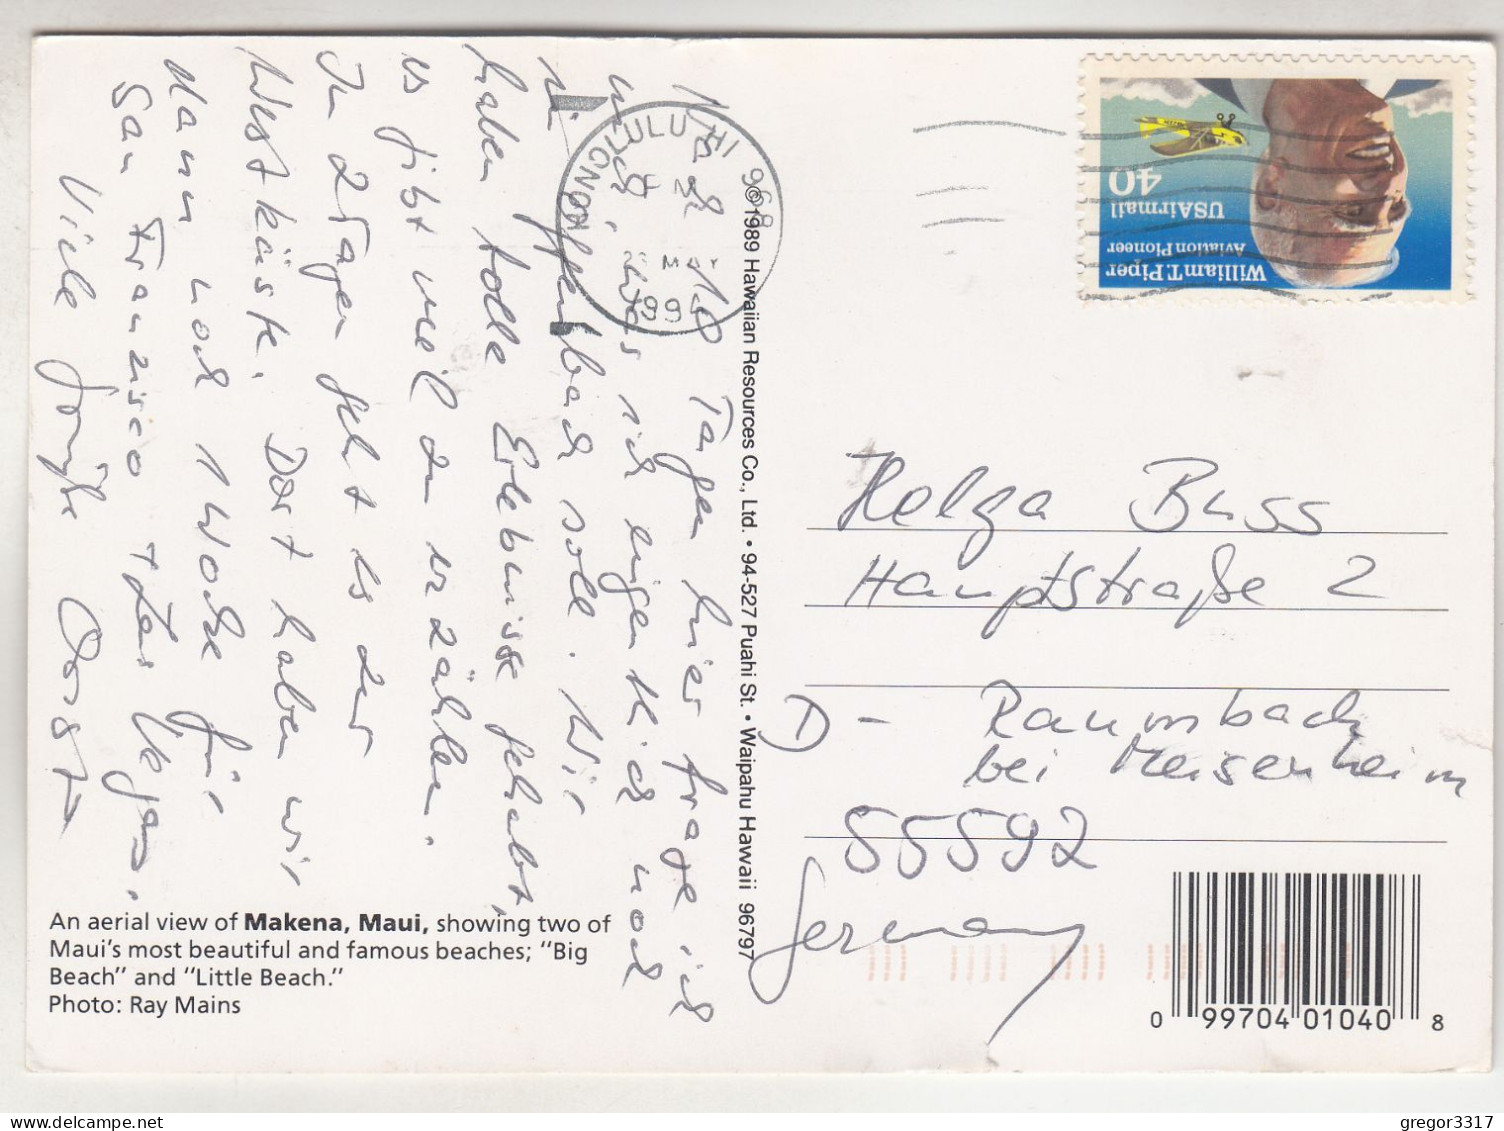 Nach 10 Tagen hier frage ich
mich, was ich eigentlich noch
in Uffenbach soll. Wir
haben tolle Erlebnisse gehabt,
es gibt viel zu erzählen.
In 2 Tagen geht es zur
Westküste. Dort haben wir
dann noch 1 Woche für
San Franzisco + Las Vegas.
Viele Grüße
HONOLULU HI 968
MAY
199
William T. Piper
Aviation Pioneer
USAirmail
40
© 1989 Hawaiian Resources Co., Ltd. • 94-527 Puahi St. • Waipahu Hawaii 96797
Helga Buss
Hauptstraße 2
D - Raumbach
bei Meisenheim
55592
Germany
An aerial view of Makena, Maui, showing two of
Maui's most beautiful and famous beaches; "Big
Beach" and "Little Beach."
Photo: Ray Mains
0 99704 01040 8
gregor3317